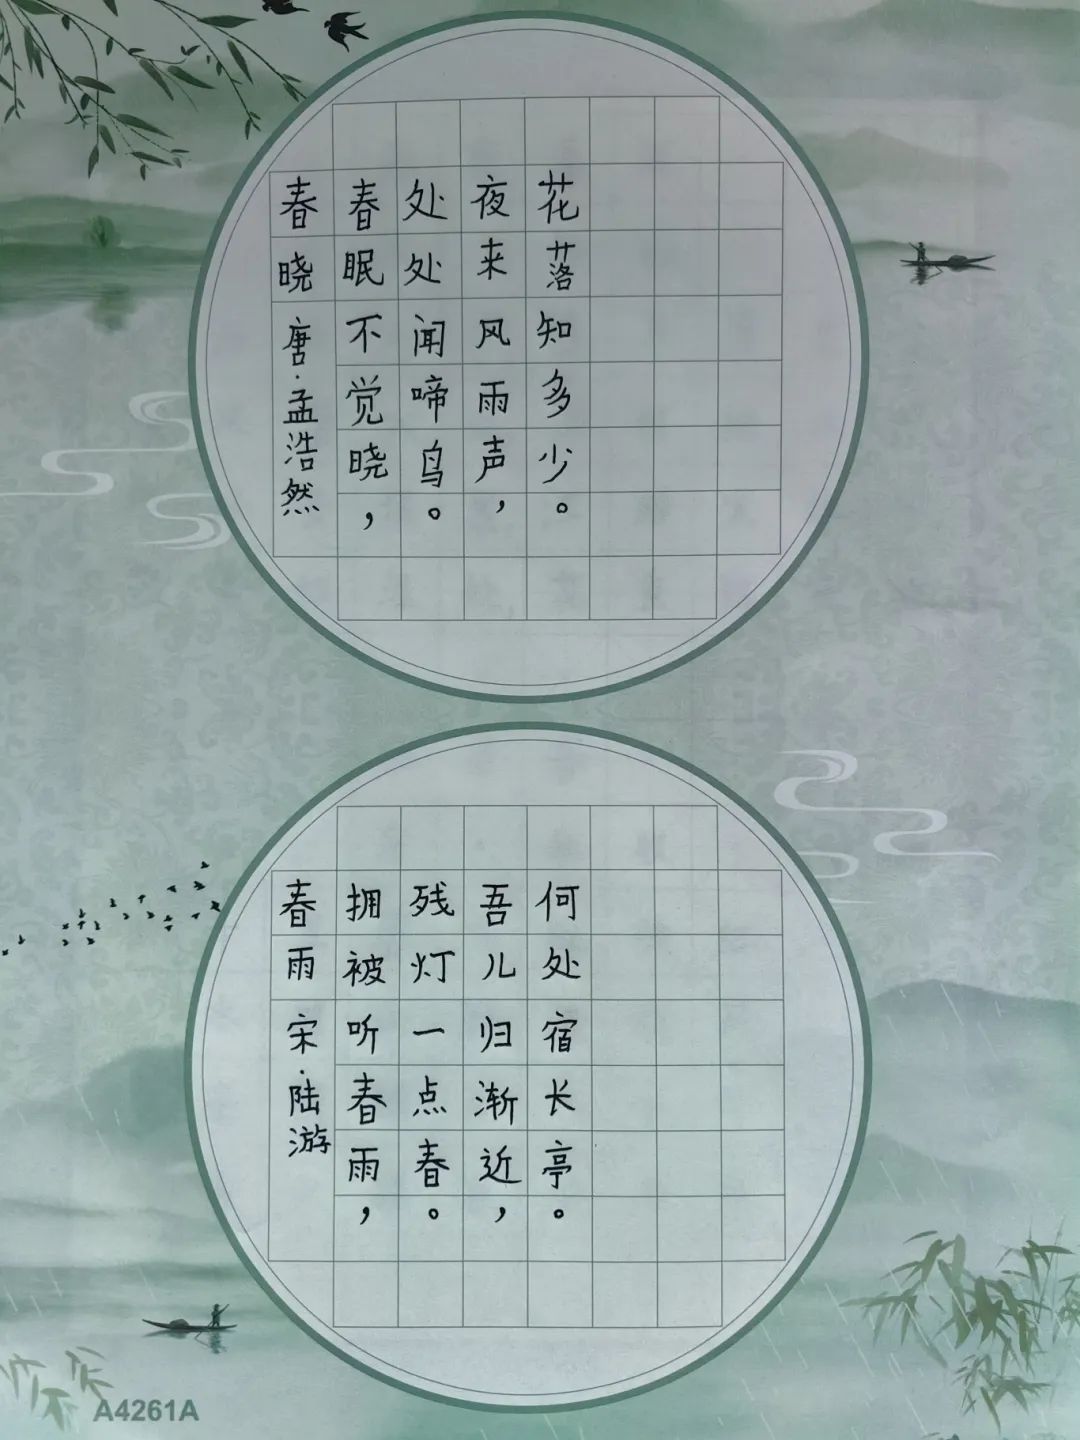 春晓 唐·孟浩然
春眠不觉晓，
处处闻啼鸟。
夜来风雨声，
花落知多少。
春雨 宋·陆游
拥被听春雨，
残灯一点春。
吾儿归渐近，
何处宿长亭。
A4261A